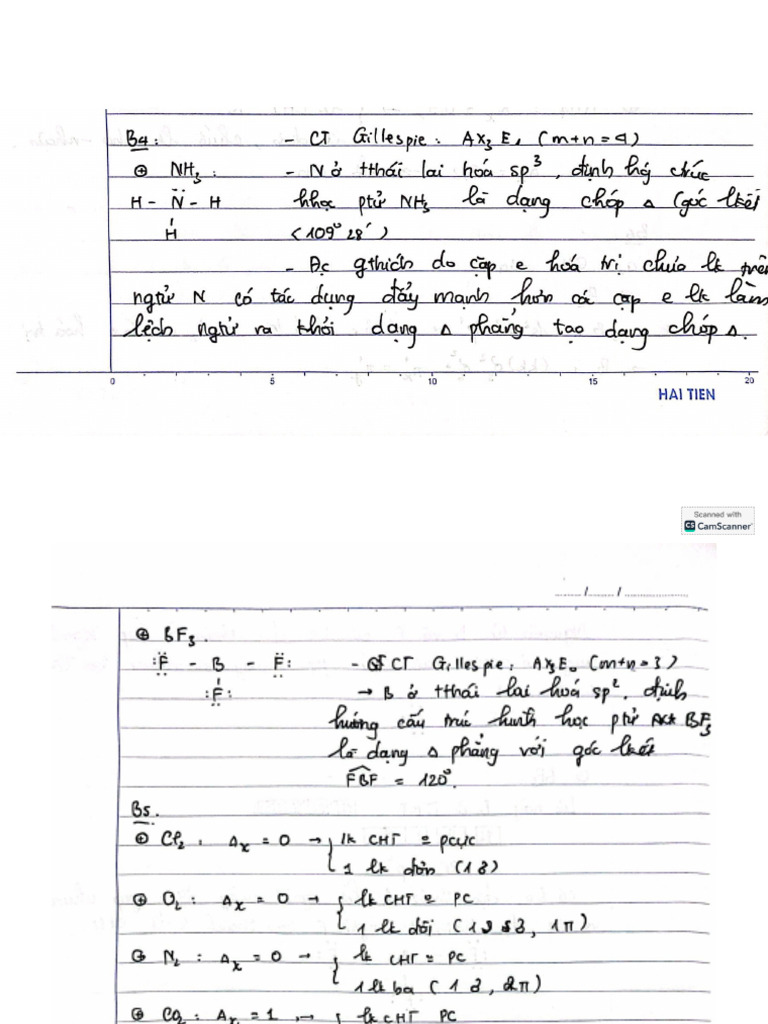 B4: - CT Gillespie: AX3E1 (m+n=4)
⊕ NH3: - N ở tthái lai hoá sp3, định hg ctrúc
H - N̈ - H hhọc ptử NH3 là dạng chóp Δ (góc lkết
H (109°28')
- Đc gthích do cặp e hoá trị chưa lk trên
ngtử N có tác dụng đẩy mạnh hơn các cặp e lk làm
lệch ngtử ra khỏi dạng Δ phẳng tạo dạng chóp Δ.
0 5 10 15 20
HAI TIEN
Scanned with
CS CamScanner
....../....../..................
⊕ BF3.
:F̈ - B - F̈: - CT Gillespie: AX3E0 (m+n=3)
:F̈: → B ở tthái lai hoá sp2, định
hướng cấu trúc hình học ptử BF3
là dạng Δ phẳng với góc lkết
FBF = 120°.
B5.
⊕ Cl2: Δx = 0 → lk CHT o pcực
1 lk đơn (1δ)
⊕ O2: Δx = 0 → lk CHT o PC
1 lk đôi (1δ, 1π)
⊕ N2: Δx = 0 → lk CHT o PC
1 lk ba (1δ, 2π)
⊕ CO2: Δx = 1 → lk CHT PC